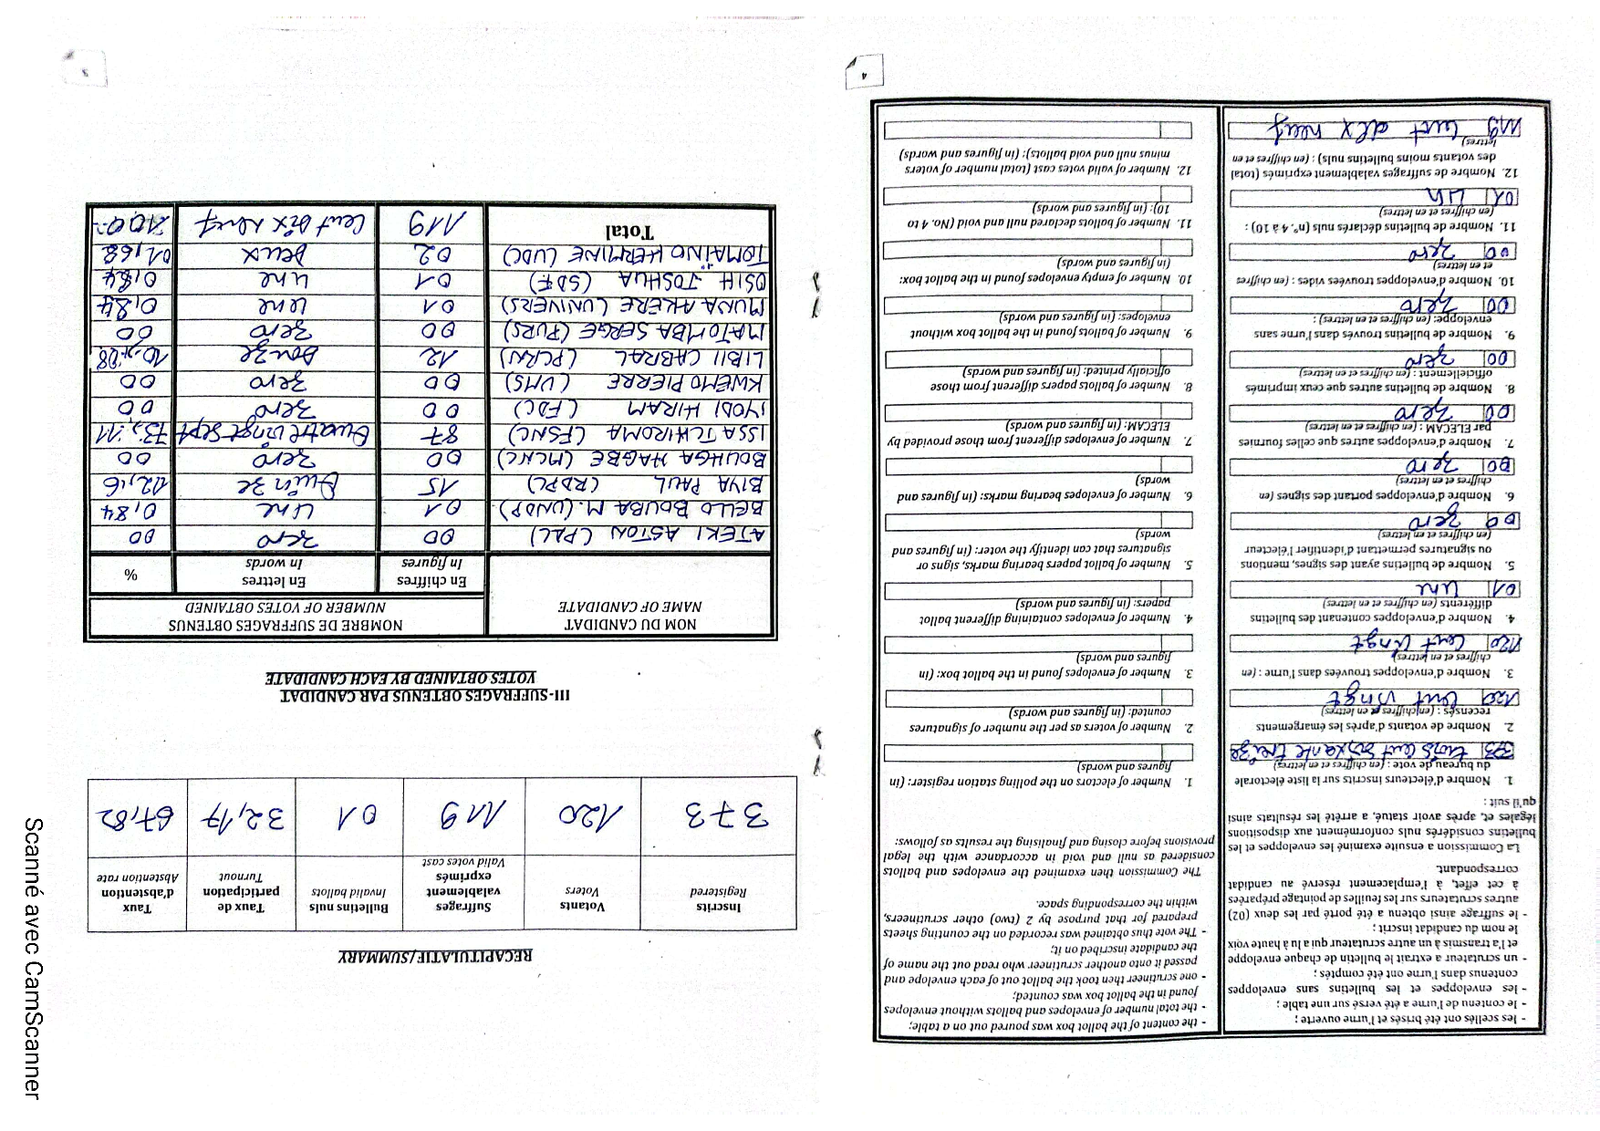 4
- les scellés ont été brisés et l'urne ouverte ;
- le contenu de l'urne a été versé sur une table ;
- les enveloppes et les bulletins sans enveloppes
contenus dans l'urne ont été comptés ;
- un scrutateur a extrait le bulletin de chaque enveloppe
et l'a transmis à un autre scrutateur qui a lu à haute voix
le nom du candidat inscrit ;
- le suffrage ainsi obtenu a été porté par les deux (02)
autres scrutateurs sur les feuilles de pointage préparées
à cet effet, à l'emplacement réservé au candidat
correspondant.
La Commission a ensuite examiné les enveloppes et les
bulletins considérés nuls conformément aux dispositions
légales et, après avoir statué, a arrêté les résultats ainsi
qu'il suit :
1. Nombre d'électeurs inscrits sur la liste électorale
du bureau de vote : (en chiffres et en lettres)
373 trois cent soixante treize
2. Nombre de votants d'après les émargements
recensés : (en chiffres et en lettres)
120 cent vingt
3. Nombre d'enveloppes trouvées dans l'urne : (en
chiffres et en lettres)
120 cent vingt
4. Nombre d'enveloppes contenant des bulletins
différents (en chiffres et en lettres)
01 une
5. Nombre de bulletins ayant des signes, mentions
ou signatures permettant d'identifier l'électeur
(en chiffres et en lettres)
00 zero
6. Nombre d'enveloppes portant des signes (en
chiffres et en lettres)
00 zero
7. Nombre d'enveloppes autres que celles fournies
par ELECAM : (en chiffres et en lettres)
00 zero
8. Nombre de bulletins autres que ceux imprimés
officiellement : (en chiffres et en lettres)
00 zero
9. Nombre de bulletins trouvés dans l'urne sans
enveloppe: (en chiffres et en lettres) :
00 zero
10. Nombre d'enveloppes trouvées vides : (en chiffres
et en lettres)
00 zero
11. Nombre de bulletins déclarés nuls (n°. 4 à 10) :
(en chiffres et en lettres)
01 un
12. Nombre de suffrages valablement exprimés (total
des votants moins bulletins nuls) : (en chiffres et en
lettres)
119 cent dix neuf
- the content of the ballot box was poured out on a table;
- the total number of envelopes and ballots without envelopes
found in the ballot box was counted;
- one scrutineer then took the ballot out of each envelope and
passed it onto another scrutineer who read out the name of
the candidate inscribed on it;
- The vote thus obtained was recorded on the counting sheets
prepared for that purpose by 2 (two) other scrutineers,
within the corresponding space.
The Commission then examined the envelopes and ballots
considered as null and void in accordance with the legal
provisions before closing and finalising the results as follows:
1. Number of electors on the polling station register: (in
figures and words)
2. Number of voters as per the number of signatures
counted: (in figures and words)
3. Number of envelopes found in the ballot box: (in
figures and words)
4. Number of envelopes containing different ballot
papers: (in figures and words)
5. Number of ballot papers bearing marks, signs or
signatures that can identify the voter: (in figures and
words
6. Number of envelopes bearing marks: (in figures and
words)
7. Number of envelopes different from those provided by
ELECAM: (in figures and words)
8. Number of ballots papers different from those
officially printed: (in figures and words)
9. Number of ballots found in the ballot box without
envelopes: (in figures and words)
10. Number of empty envelopes found in the ballot box:
(in figures and words)
11. Number of ballots declared null and void (No. 4 to
10): (in figures and words)
12. Number of valid votes cast (total number of voters
minus null and void ballots): (in figures and words)
RECAPITULATIF/SUMMARY
Inscrits Registered | Votants Voters | Suffrages valablement exprimés Valid votes cast | Bulletins nuls Invalid ballots | Taux de participation Turnout | Taux d'abstention Abstention rate
373 120 119 01 32,17 67,82
III- SUFFRAGES OBTENUS PAR CANDIDAT
VOTES OBTAINED BY EACH CANDIDATE
NOM DU CANDIDAT NAME OF CANDIDATE
NOMBRE DE SUFFRAGES OBTENUS
NUMBER OF VOTES OBTAINED
En chiffres In figures | En lettres In words | %
ATEKI ASTON (PAL) 00 zero 00
BELLO BOUBA M. (UNDP) 01 une 0,84
BIYA PAUL (RDPC) 15 Quinze 12,6
BOUHGA HAGBE (MCNC) 00 zero 00
ISSA TCHIROMA (FSNC) 87 Quatre vingt sept 73,11
IYODI HIRAM (FDC) 00 zero 00
KWEMO PIERRE (UMS) 00 zero 00
LIBII CABRAL (PCRN) 12 Douze 10,08
MATOMBA SERGE (PURS) 00 zero 00
MUNA AKERE (UNIVERS) 01 une 0,84
OSIH JOSHUA (SDF) 01 une 0,84
TOMAINO HERMINE (UDC) 02 Deux 01,68
Total 119 Cent dix neuf
Scanné avec CamScanner